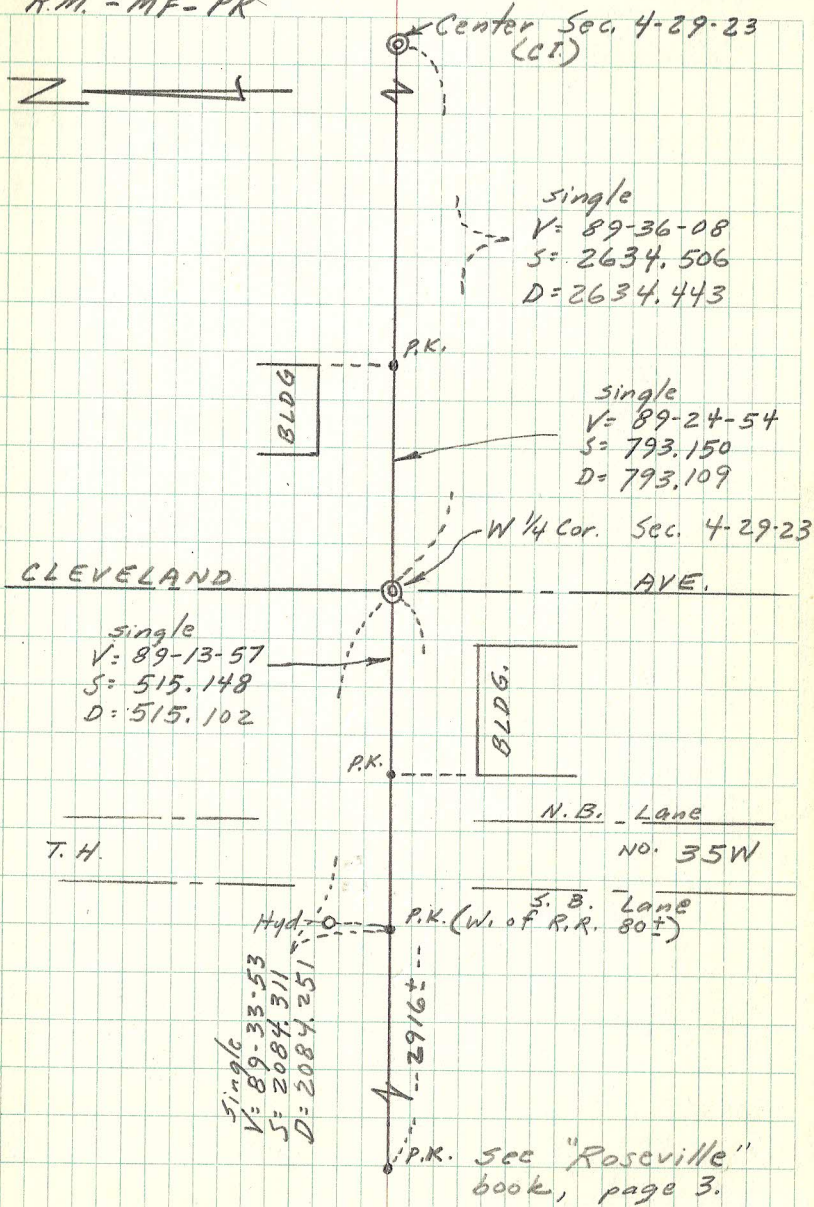 R.M. - MF - PK
Center Sec. 4-29-23
(CI.)
Z
single
V= 89-36-08
S= 2634.506
D= 2634.443
P.K.
BLDG
single
V= 89-24-54
S= 793.150
D= 793.109
W 1/4 Cor. Sec. 4-29-23
CLEVELAND AVE.
single
V= 89-13-57
S= 515.148
D= 515.102
BLDG.
P.K.
N.B. Lane
T.H. NO. 35W
S.B. Lane
Hyd. P.K. (W. of R.R. 80±)
single
V= 89-33-53
S= 2084.311
D= 2084.251
2916±
P.K. see "Roseville"
book, page 3.